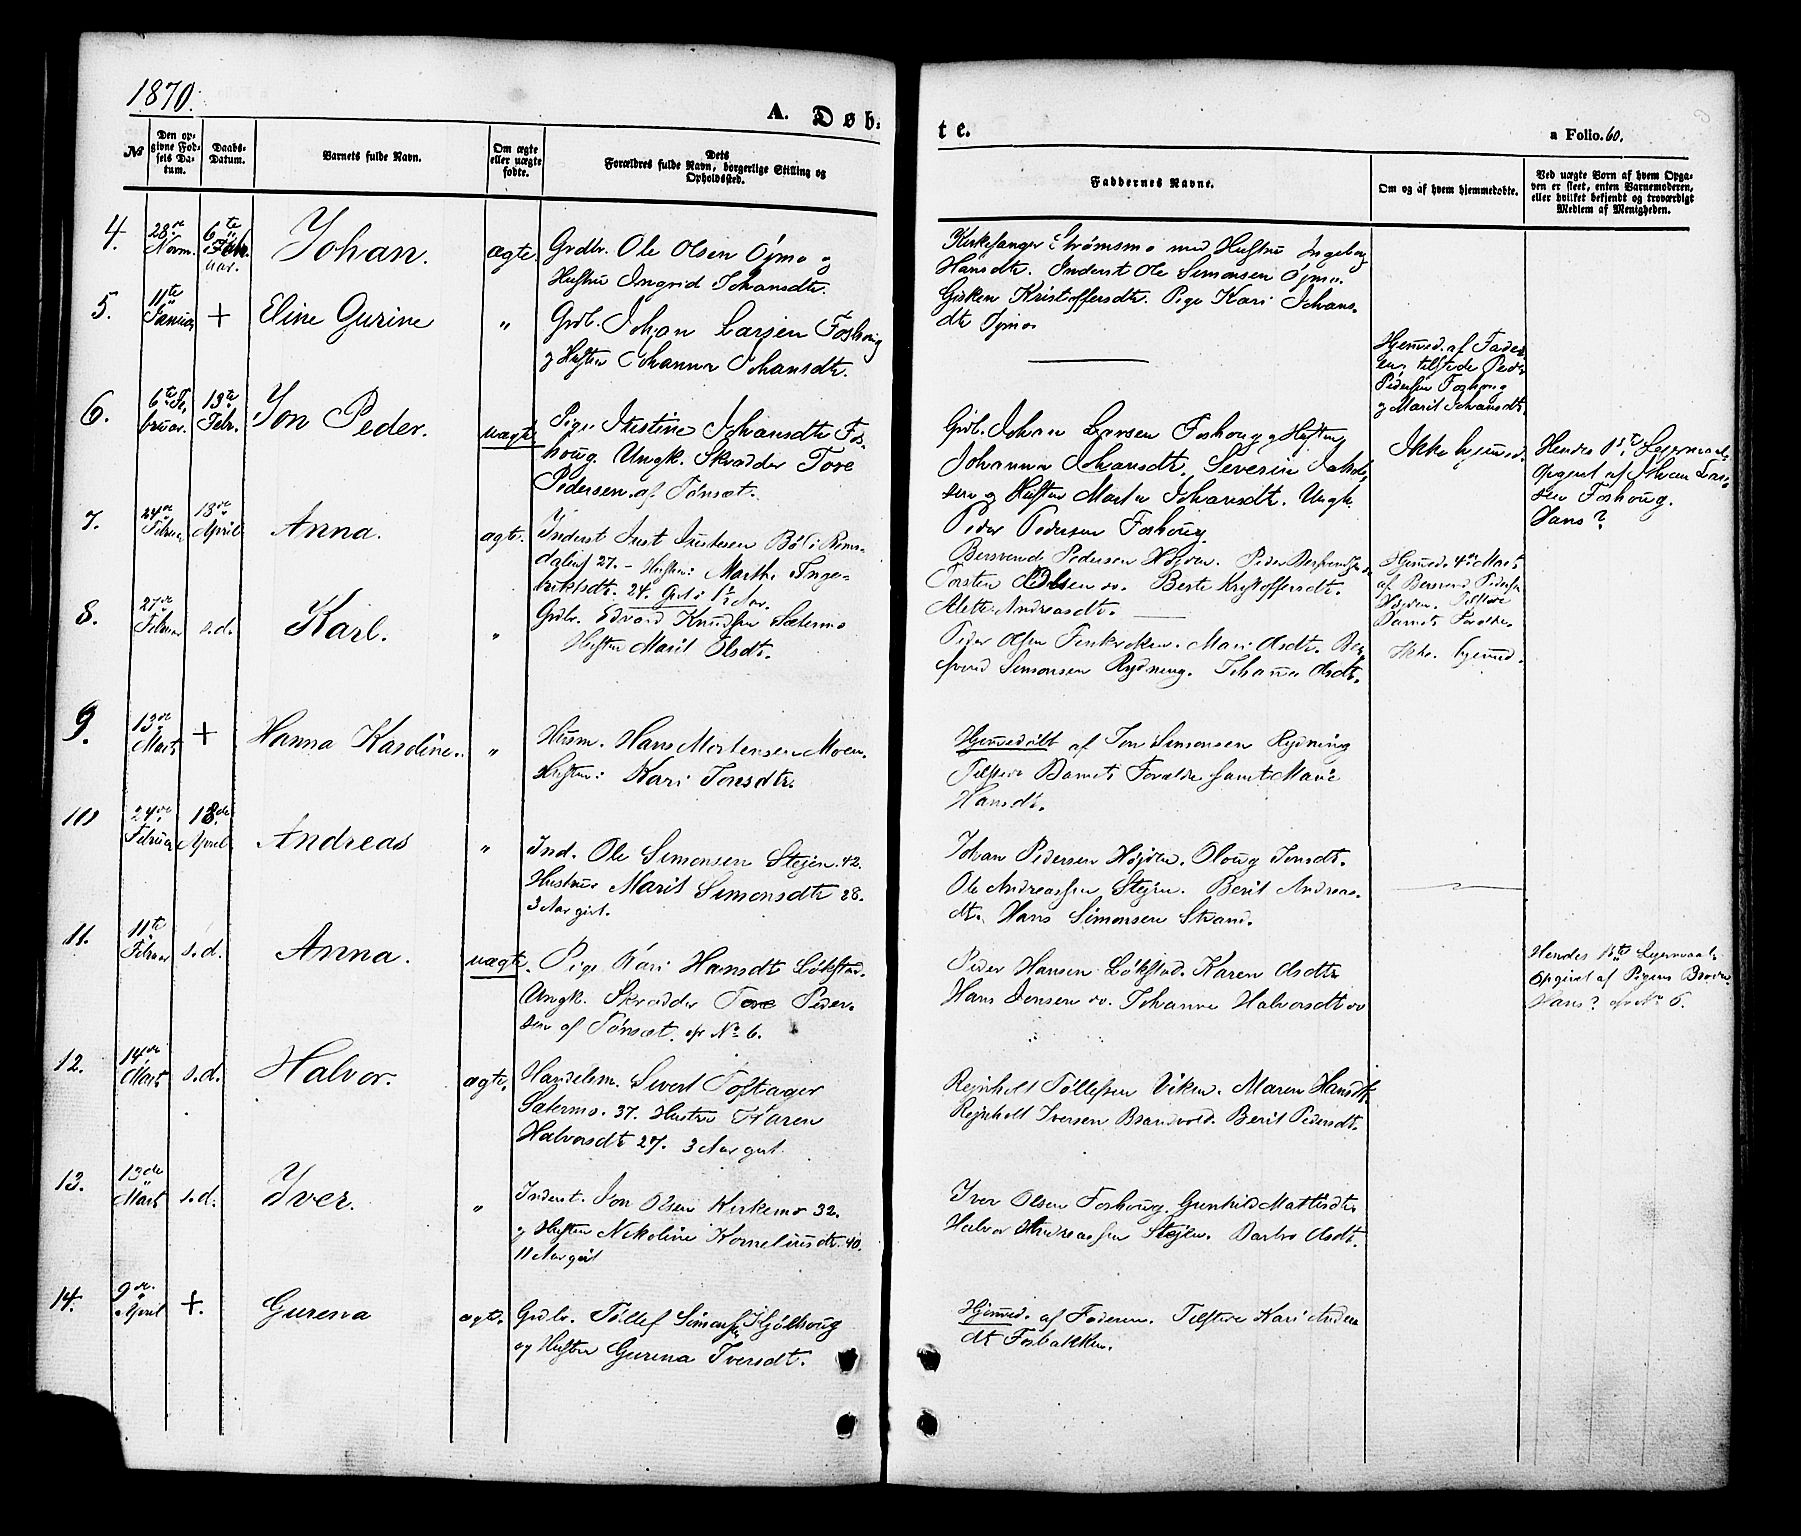 1870.
A. Døb-
te.
a Folio. 60.
№
Den op-
givne Fød-
sels Da-
tum.
Daabs-
Datum.
Barnets fulde Navn.
Om ægte
eller uægte
fødte.
Dets
Forældres fulde Navn, borgerlige Stilling og
Opholdssted.
Faddernes Navne.
Om og af hvem hjemmedøbte.
Ved uægte Børn af hvem Opga-
ven er skeet, enten Barnemoderen,
eller hvilket bekjendt og troværdigt
Medlem af Menigheden.
4.
28de
Novm.
6te
Febr
uar.
Johan.
ægte.
Grdbr. Ole Olsen Øjmo og
Hustru Ingrid Johansdtr.
Kirkesanger Strømsmo med Hustru Ingeborg
Hansdtr. Inderst Ole Simonsen Øjmo.
Gisken Kristoffersdtr. Pige Kari Johans-
dtr Øjmo
5.
11te
Januar
+
Eline Gurine
"
Grdb. Johan Larsen Foshoug
og Hustru Johanna Johansdtr.
Hjemmed. af Fader-
en, tilstede Peder
Pedersen Foshoug
og Marit Johansdt.
6.
6te Fe-
bruar.
13te
Febr.
Jon Peder.
uægte
Pige Kristine Johansdtr Fos-
houg. Ungk. Skrædder Tore
Pedersen af Tønsæt.
Grdb. Johan Larsen Foshoug og Hustru
Johanna Johansdtr. Severin Jakob-
sen og Hustru Marta Johansdtr. Ungk.
Peder Pedersen Foshoug.
Ikke hjemmed.
Hendes 1ste Lejermaal
Opgivet af Johan Lar-
sen Foshoug.
Hans?
7.
24de
Februar
18de
April
Anna.
ægte.
Inderst Just Justesen Bø i Roms-
dalen 27. - Hustru: Marthe Inge-
briktsdtr. 24. Gift 1½ Aar.
Bersvend Pedersen Højden. Peder Bersvendsen
Torsten Olsen ov. Berte Kristoffersdtr.
Alette Andreasdtr.
Hjemmed. 4de Marts
af Bersvend Pedersen
Højden. Tilstede
Barnets Forældre.
8.
27de
Februar
s.d.
Karl.
"
Grdbr. Edvard Knudsen Sætermo
Hustru Marit Olsdtr.
Peder Olsen Mari Olsdtr. Ber-
svend Simonsen Rydning. Johanna Olsdtr.
Ikke hjemmed.
9.
13de
Marts
+
Hanna Karoline.
"
Husm. Hans Mortensen Moen.
Hustru: Kari Jonsdtr.
Hjemmedøbt af Jon Simonsen Rydning
Tilstede Barnets Forældre samt Marie
Hansdtr.
10
24de
Februar
18de
April
Andreas
"
Ind. Ole Simonsen Stejen 42.
Hustru Marit Simonsdtr 28.
3 Aar gift.
Johan Pedersen Højden. Oloug Jonsdtr.
Ole Andreassen Stejen. Berit Andreas-
dtr. Hans Simonsen Strand.
11.
11te
Februar
s.d.
Anna.
uægte.
Pige Kari Hansdtr Løkstad.
Ungk. Skrædder Tore Peder-
sen af Tønsæt. cfr No 6.
Peder Hansen Løkstad. Karen Olsdtr
Hans Jensen ov. Johanne Halvorsdtr ov
Hendes 1ste Lejermaal.
Opgivet af Pigens Broder.
Hans? cfr No 6.
12.
14de
Marts
s.d.
Halvor.
ægte.
Handelsm. Sivert Toftager
Sætermo. 37. Hustru Karen
Halvorsdtr 27. 3 Aar gift.
Rejnholt Tollefsen Viken. Maren Hansdtr.
Rejnholt Iversen Brandvold. Berit Pedersdtr.
13.
13de
Marts
s.d.
Iver.
"
Inderst. Jon Olsen Kirkemo 32.
og Hustru Nikoline Korneliusdtr. 40.
11 Aar gift
Iver Olsen Foshoug. Gunhild Mattisdtr.
Halvor Andreassen Stejen. Barbro Olsdtr.
14.
9de
April
+.
Gurena
ægte.
Grdbr. Tollef Simonsen Kjølhoug
og Hustru Gurena Iversdtr.
Hjemmed. af Faderen. Tilstede Kari Anders
dtr Fosbakken.